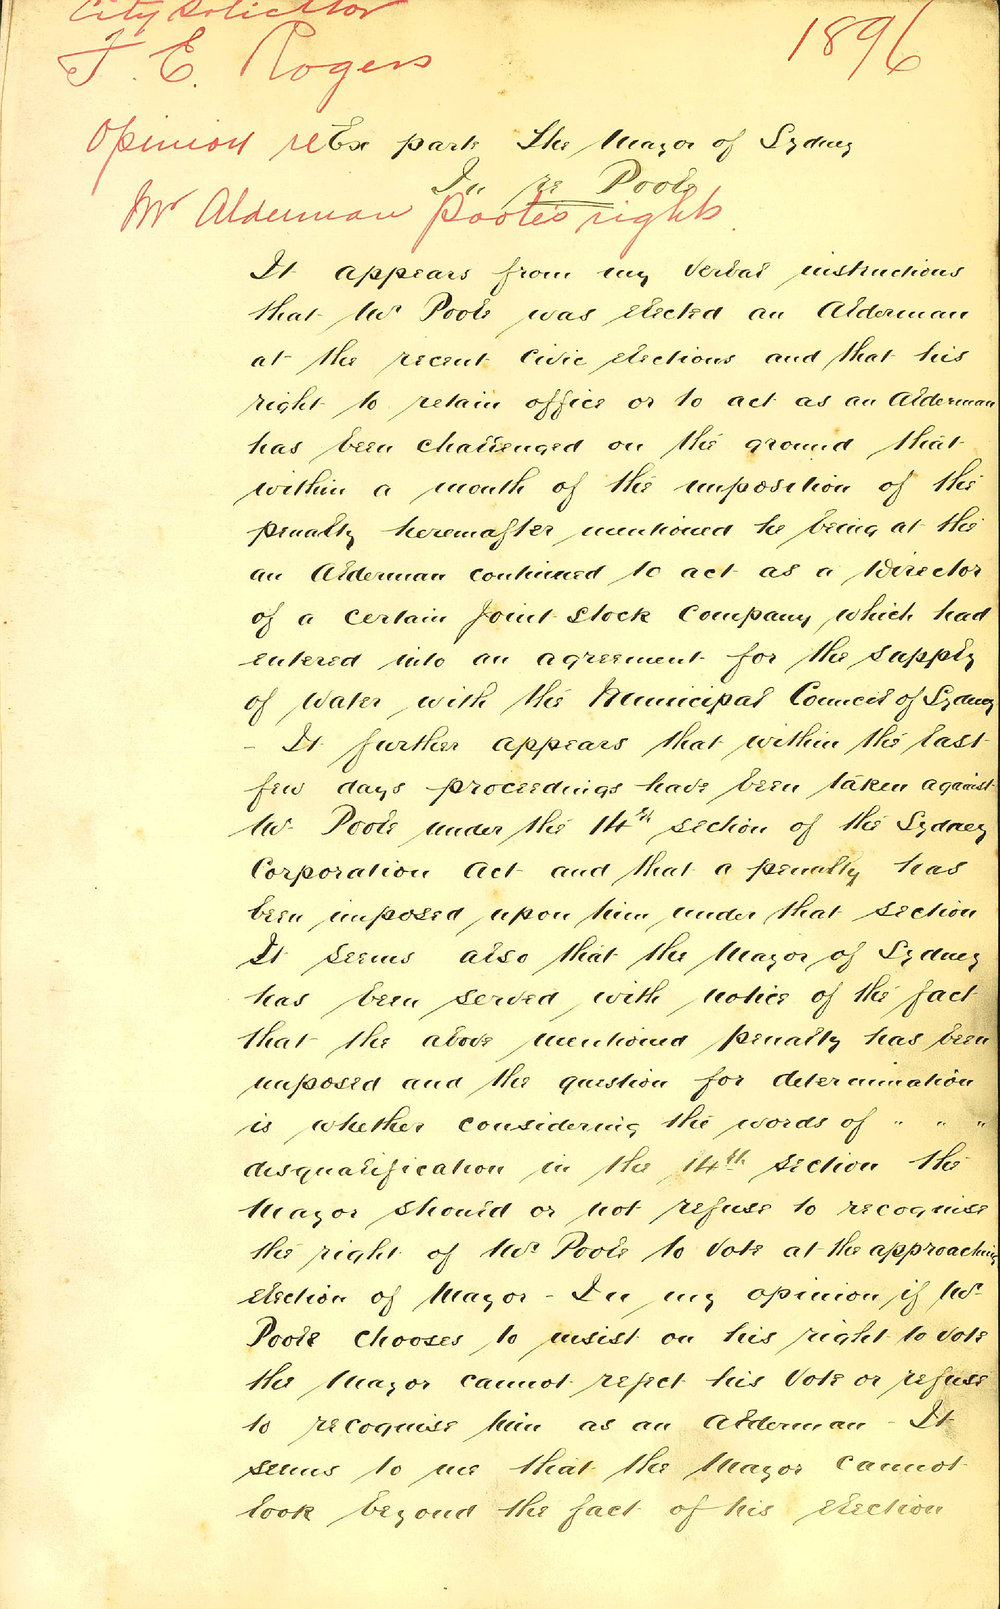 City Solicitor
F. E. Rogers
1896
Opinion re Ex parte The Mayor of Sydney
In re Poole
Mr Alderman Poole's rights.
It appears from my verbal instructions
that Mr Poole was elected an Alderman
at the recent Civic elections and that his
right to retain office or to act as an Alderman
has been challenged on the ground that
within a month of the imposition of the
penalty hereinafter mentioned he being at the
an Alderman continued to act as a Director
of a certain Joint Stock Company which had
entered into an agreement for the supply
of Water with the Municipal Council of Sydney
- It further appears that within the last
few days proceedings have been taken against
Mr Poole under the 14th section of the Sydney
Corporation Act and that a penalty has
been imposed upon him under that section
It seems also that the Mayor of Sydney
has been served with notice of the fact
that the above mentioned penalty has been
imposed and the question for determination
is whether considering the words of " " "
disqualification in the 14th section the
Mayor should or not refuse to recognise
the right of Mr Poole to vote at the approaching
election of Mayor - In my opinion if Mr
Poole chooses to insist on his right to vote
the Mayor cannot reject his Vote or refuse
to recognise him as an Alderman - It
seems to me that the Mayor cannot
look beyond the fact of his election